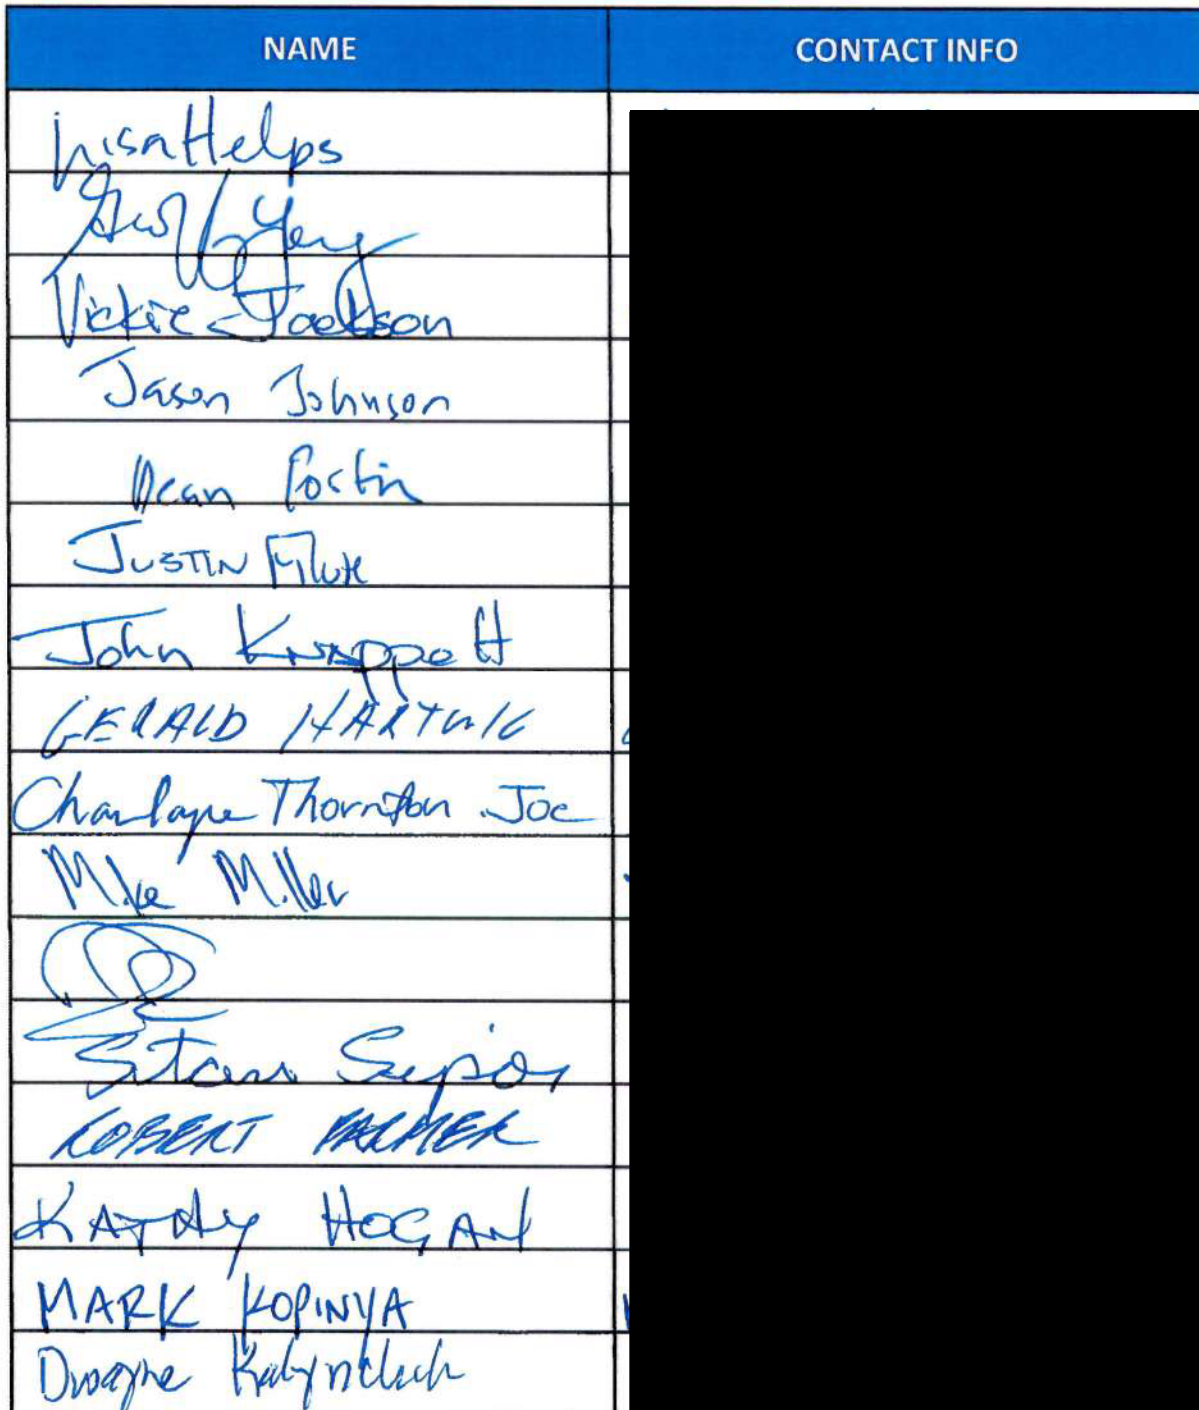 NAME CONTACT INFO
Lisa Helps
Geoff Young
Vickie Jackson
Jason Johnson
Dean Fortin
JUSTIN
John Knappett
GERALD HARTWIG
Charlayne Thornton-Joe
Mike Miller
ROBERT
KATHY HOGAN
MARK KOPINYA
Dwayne Kalynchuk